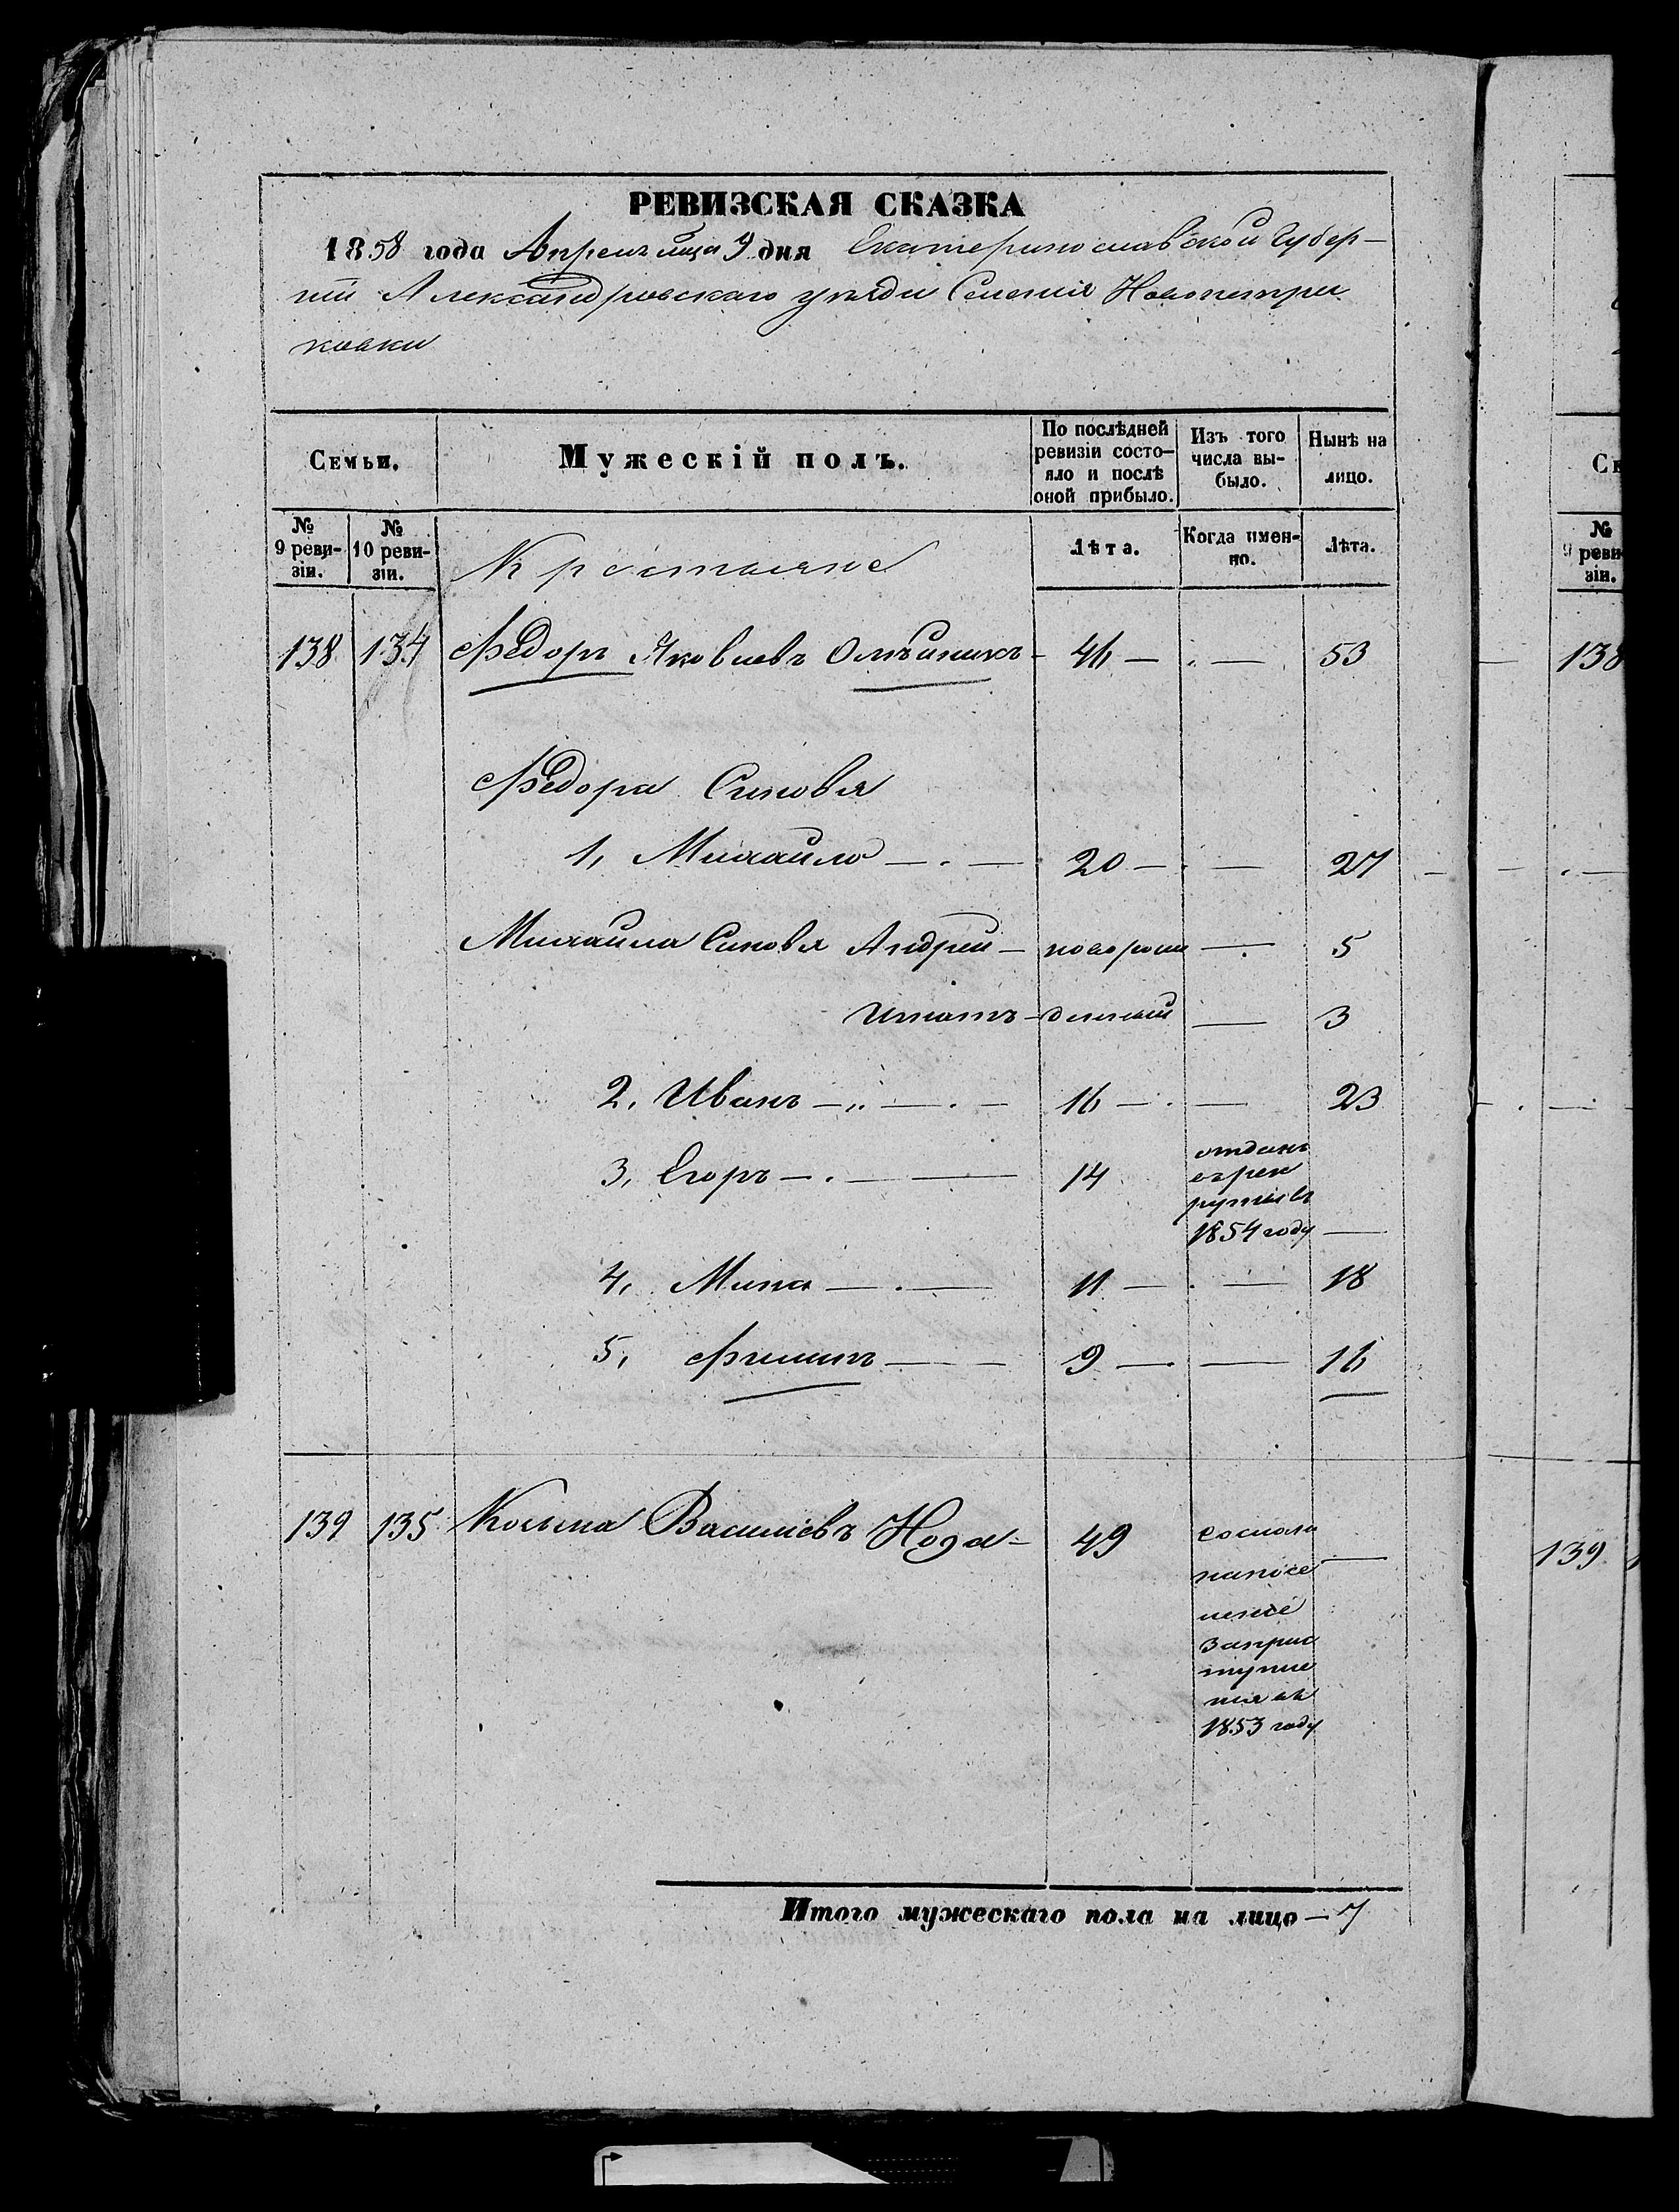 РЕВИЗСКАЯ СКАЗКА
1858 года Апреля мца 9 дня Екатеринославской Губер-
нiи Александровскаго уезда Селенiя Новопетри
ковки
Семьи.
Мужескiй полъ.
По послѣдней ревизiи состо-яло и послѣ оной прибыло.
Изъ того числа вы-было.
Нынѣ на лицо.
№ 9 реви-зiи.
№ 10 реви-зiи.
Крестьяне
Лѣта.
Когда имен-но.
Лѣта.
138 134 Федоръ Яковлевъ Олѣйникъ - 46 — . — 53
Федора Синовья
1, Михайло — . — 20 — . — 27
Михайла Синовья Андрей — новорож — . 5
Игнатъ - денный — 3
2, Иванъ — „ — . — 16 — . — 23
3, Егоръ — . — — 14 отданъ
въ рек
руты въ
1854 году —
4, Мина — . — 11 — . — 18
5, Филипъ — — 9 — . — 16
139 135 Козьма Васильевъ Нога - 49 сосланъ —
на посе
ленiе
за прес
тупле
нiя въ
1853 году
Итого мужескаго пола на лицо — 7
Се
№ 9 реви
зiи.
138
139 1